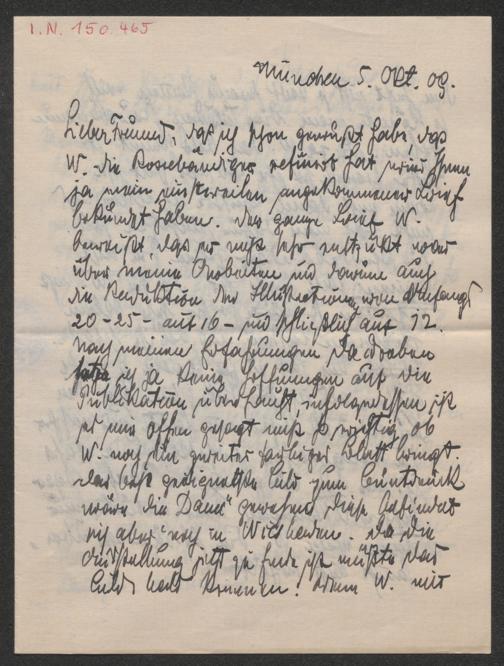 I.N. 150.465
München 5. Okt. 09.
Lieber Freund, daß ich schon gewußt habe, daß
W. die refüsiert hat wird Ihnen
ja mein einstweilen angekommener Brief
bekundet haben. Der ganze Brief W.
beweißt, daß er nicht sehr entzückt war
über meine Arbeiten und darum auch
die Reduktion der Illustrationen von Anfangs
20-25- auf 16- und schließlich auf 12.
Nach meinen Erfahrungen da droben
setze ich ja keine Hoffnungen auf die
Publikation überhaupt, infolgedessen ist
es mir offen gesagt nicht so wichtig ob
W. noch ein zweites farbiges Blatt bringt.
Das best geeignetste Bild zum Buntdruck
wäre die "Dame" gewesen diese befindet
sich aber noch in Wiesbaden. Da die
Ausstellung jetzt zu Ende ist müßte das
Bild bald kommen! Wenn W. mit